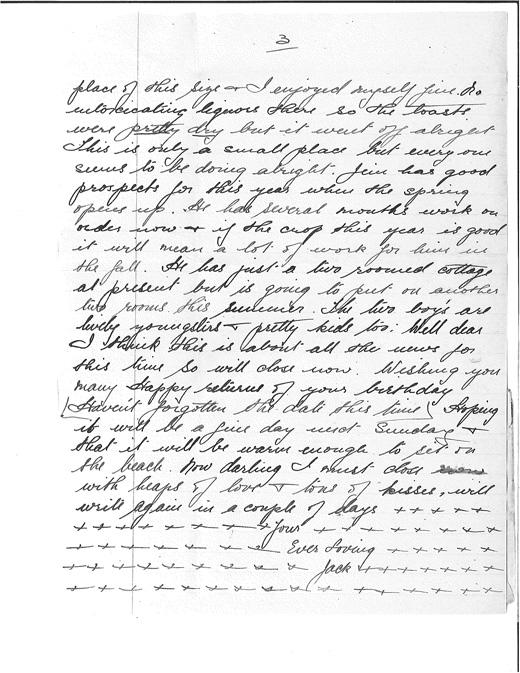 3
place of this size + I enjoyed myself fine. No
intoxicating liquors there so the toasts
were pretty dry but it went off alright
This is only a small place but every one
seems to be doing alright. Jim has good
prospects for this year when the spring
opens up. He has several months work on
order now + if the crop this year is good
it will mean a lot of work for him in
the fall. He has just a two roomed cottage
at present but is going to put on another
two rooms this summer. The two boys are
lively youngsters + pretty kids too. Well dear
I think this is about all the news for
this time so will close now. Wishing you
many Happy returns of your birthday
(Haven't forgotten the date this time) Hoping
it will be a fine day next Sunday +
that it will be warm enough to set on
the beach. Now darling I must close
with heaps of love + tons of kisses, will
write again in a couple of days + + + + +
+ + + + + + + + Your + + + + + + + + +
+ + + + + + + + Ever Loving + + + + + +
+ + + + + + + + + + Jack + + + + + + +
+ + + + + + + + + + + + + + + + + + +